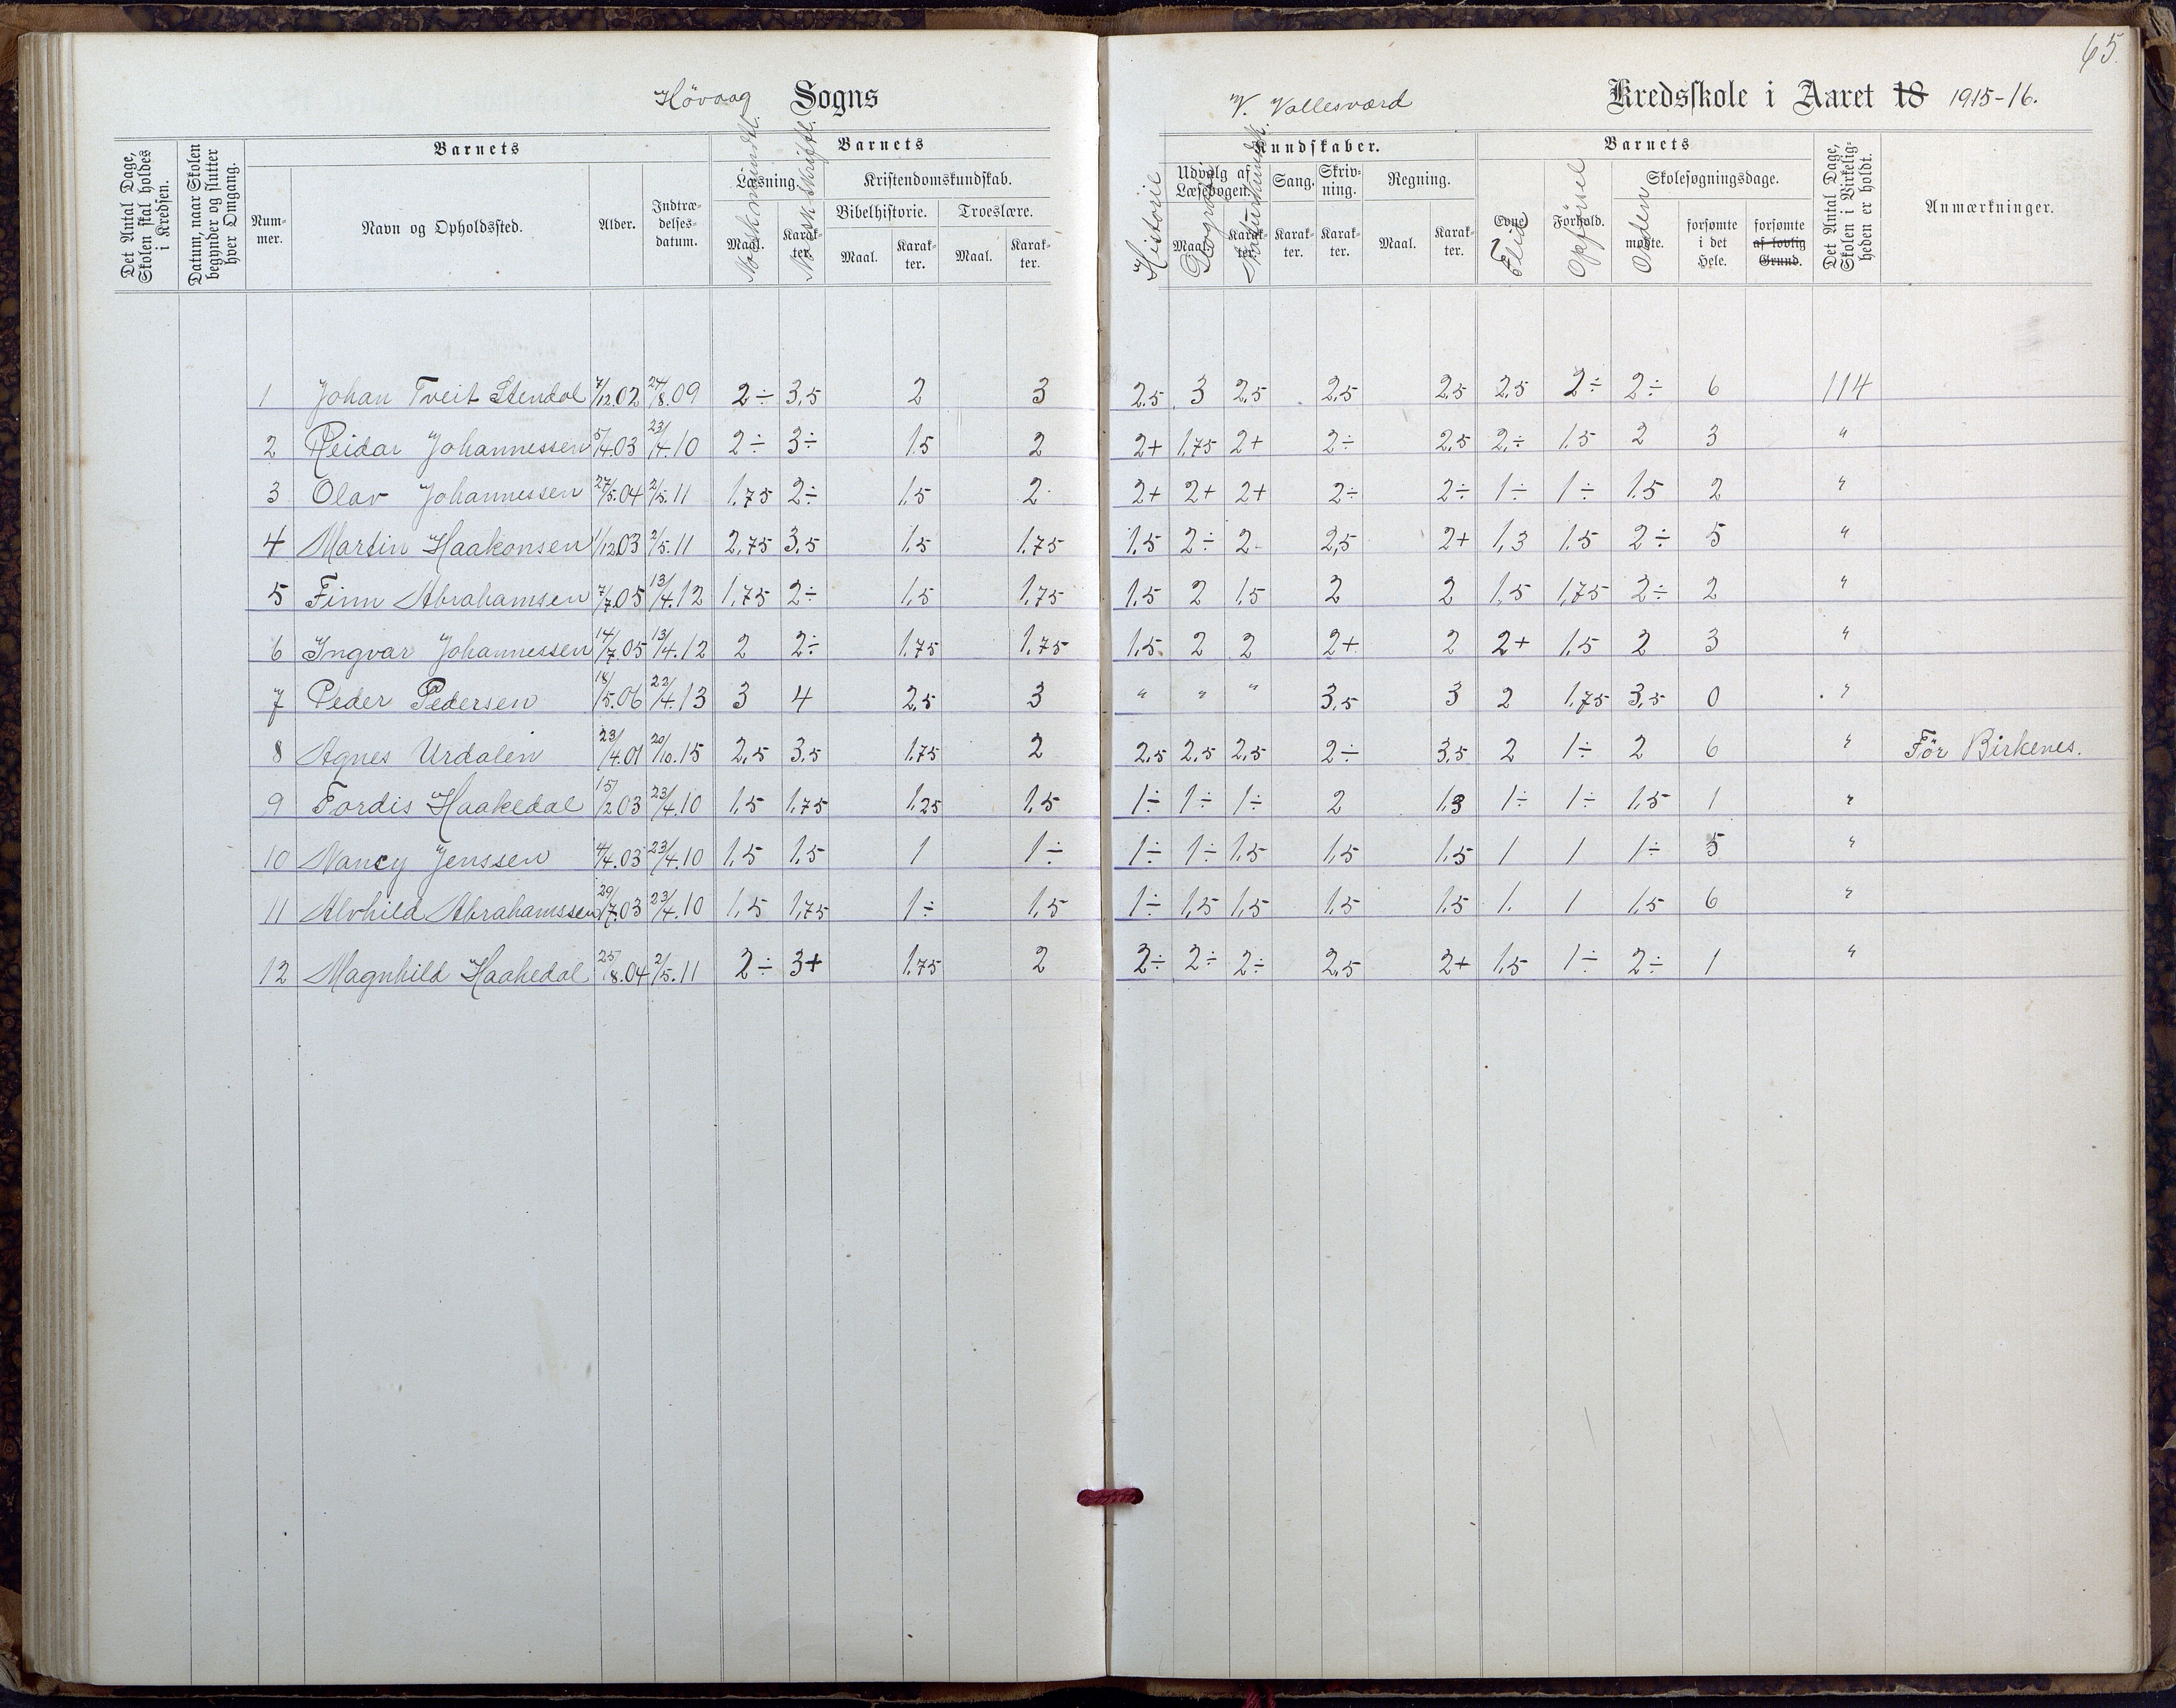 65.
Høvaag Sogns
V. Vallesværd Kredsskole i Aaret 18 1915-16.
Det Antal Dage, Skolen skal holdes i Kredsen.
Datum, naar Skolen begynder og slutter hver Omgang.
Barnets
Num-mer.
Navn og Opholdssted.
Alder.
Indtræ-delses-datum.
Barnets
Læsning.
Maal. Karak-ter.
Norsk mundtl.
Norsk skriftl.
Kristendomskundskab.
Bibelhistorie. Troeslære.
Maal. Karak-ter. Maal. Karak-ter.
Kundskaber.
Historie
Udvalg af Læsebogen.
Maal. Karak-ter.
Geografi
Naturkundsk.
Sang. Skriv-ning. Regning.
Karak-ter. Karak-ter. Maal. Karak-ter.
Barnets
Evne Forhold.
Flid
Opførsel
Orden
Skolesøgningsdage.
mødte. forsømte i det Hele. forsømte af lovlig Grund.
Det Antal Dage, Skolen i Virkelig-heden er holdt.
Anmærkninger.
1 Johan Tveit Stendal 7/12.02 24/8.09 2÷ 3,5 2 3 2,5 3 2,5 2,5 2,5 2,5 2÷ 2÷ 6 114
2 Reidar Johannessen 5/4.03 23/4.10 2÷ 3÷ 1,5 2 2+ 1,75 2+ 2÷ 2,5 2÷ 1,5 2 3 "
3 Olav Johannessen 27/5.04 2/5.11 1,75 2÷ 1,5 2 2+ 2+ 2+ 2÷ 2÷ 1÷ 1÷ 1,5 2 "
4 Martin Haakonsen 1/12.03 2/5.11 2,75 3,5 1,5 1,75 1,5 2÷ 2 2,5 2+ 1,3 1,5 2÷ 5 "
5 Finn Abrahamsen 7/7.05 13/4.12 1,75 2÷ 1,5 1,75 1,5 2 1,5 2 2 1,5 1,75 2÷ 2 "
6 Ingvar Johannessen 14/7.05 13/4.12 2 2÷ 1,75 1,75 1,5 2 2 2+ 2 2+ 1,5 2 3 "
7 Peder Pedersen 18/5.06 22/4.13 3 4 2,5 3 " " " 3,5 3 2 1,75 3,5 0 "
8 Agnes Urdalen 23/4.01 20/10.15 2,5 3,5 1,75 2 2,5 2,5 2,5 2÷ 3,5 2 1÷ 2 6 " Før Birkenes.
9 Tordis Haakedal 15/2.03 23/4.10 1,5 1,75 1,25 1,5 1÷ 1÷ 1÷ 2 1,3 1÷ 1÷ 1,5 1 "
10 Nancy Jenssen 4/4.03 23/4.10 1,5 1,5 1 1÷ 1÷ 1÷ 1,5 1,5 1,5 1 1 1÷ 5 "
11 Alvhild Abrahamssen 29/7.03 23/4.10 1,5 1,75 1÷ 1,5 1÷ 1,5 1,5 1,5 1,5 1. 1 1,5 6 "
12 Magnhild Haakedal 25/8.04 2/5.11 2÷ 3+ 1,75 2 2÷ 2÷ 2÷ 2,5 2+ 1,5 1÷ 2÷ 1 "